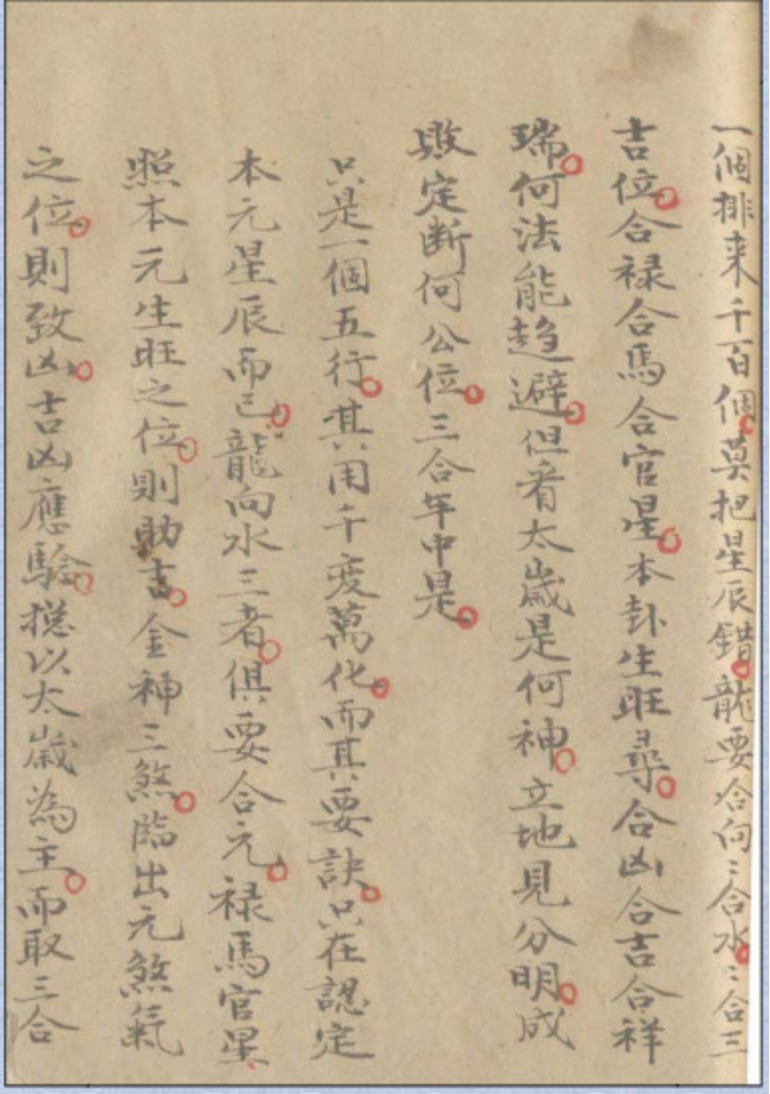 一個排来千百個。莫把星辰錯。龍要合向〻合水。〻合三
吉位。合禄合馬合官星。本卦生旺尋。合凶合吉合祥
瑞。何法能趋避。但看太歲是何神。立地見分明。成
敗定断何公位。三合年中是。
只是一個五行。其用千変萬化。而其要訣。只在認定
本元星辰而已。龍向水三者。俱要合元。禄馬官星。
照本元生旺之位。則助吉。金神三煞。臨出元煞氣
之位。則致凶。吉凶應驗。揔以太歲為主。而取三合